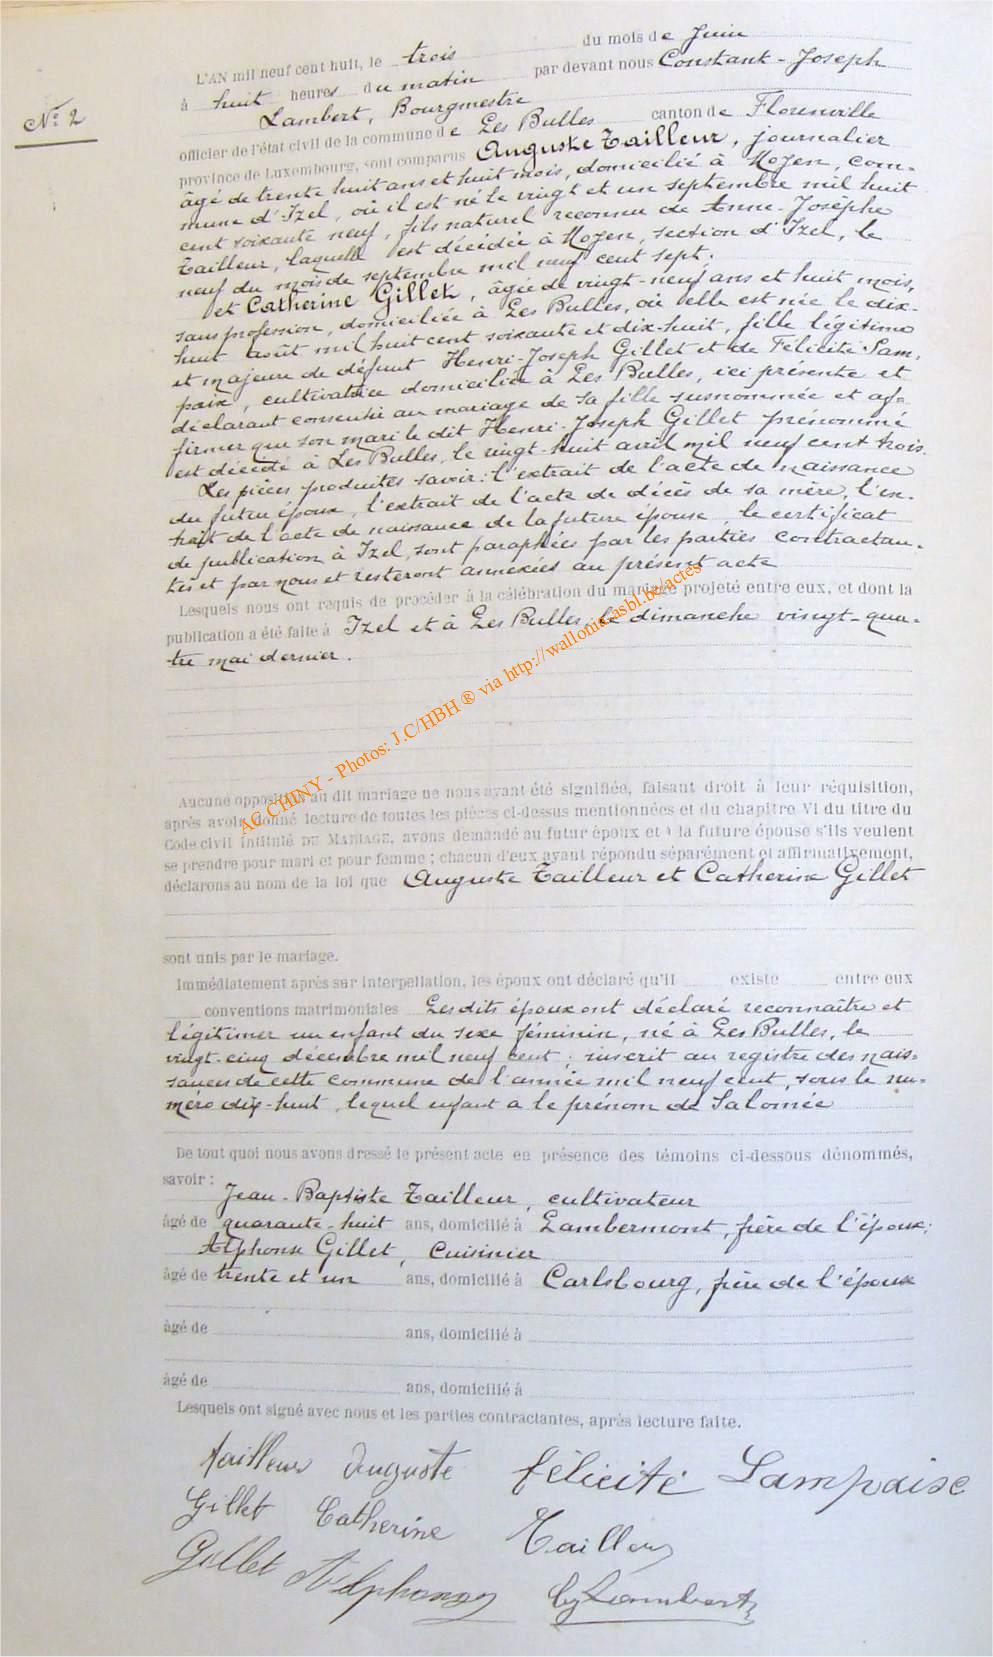 N° 2
L'AN mil neuf cent huit, le trois du mois de Juin
à huit heures du matin par devant nous Constant-Joseph
Lambert, Bourgmestre
officier de l'état civil de la commune de Les Bulles canton de Florenville
province de Luxembourg, sont comparus Auguste Tailleur, journalier
âgé de trente huit ans et huit mois, domicilié à Moyen, com-
mune d'Izel, où il est né le vingt et un septembre mil huit
cent soixante neuf, fils naturel reconnu de Anne-Josèphe
Tailleur, laquelle est décédée à Moyen, section d'Izel, le
neuf du mois de septembre mil neuf cent sept.
et Catherine Gillet, âgée de vingt-neuf ans et huit mois,
sans profession, domiciliée à Les Bulles, où elle est née le dix-
huit août mil huit cent soixante et dix-huit, fille légitime
et majeure de défunt Henri-Joseph Gillet et de Félicité Lam,
paix, cultivatrice domiciliée à Les Bulles, ici présente et
déclarant consentir au mariage de sa fille susnommée et af-
firmer que son mari le dit Henri-Joseph Gillet prénommé
est décédé à Les Bulles, le vingt-huit avril mil neuf cent trois.
Les pièces produites savoir: l'extrait de l'acte de naissance
du futur époux, l'extrait de l'acte de décès de sa mère, l'ex-
trait de l'acte de naissance de la future épouse, le certificat
de publication à Izel, sont paraphées par les parties contractan-
tes et par nous et resteront annexées au présent acte
Lesquels nous ont requis de procéder à la célébration du mariage projeté entre eux, et dont la
publication a été faite à Izel et à Les Bulles, le dimanche vingt-qua-
tre mai dernier.
AC CHINY - Photos: J.C/HBH ® via http://wallonica.asbl.be/actes
Aucune opposition au dit mariage ne nous ayant été signifiée, faisant droit à leur réquisition,
après avoir donné lecture de toutes les pièces ci-dessus mentionnées et du chapitre VI du titre du
Code civil intitulé DU MARIAGE, avons demandé au futur époux et à la future épouse s'ils veulent
se prendre pour mari et pour femme ; chacun d'eux ayant répondu séparément et affirmativement,
déclarons au nom de la loi que Auguste Tailleur et Catherine Gillet
sont unis par le mariage.
Immédiatement après sur interpellation, les époux ont déclaré qu'il existe entre eux
conventions matrimoniales Les dits époux ont déclaré reconnaître et
légitimer un enfant du sexe féminin, né à Les Bulles, le
vingt-cinq décembre mil neuf cent, inscrit au registre des nais-
sances de cette commune de l'année mil neuf cent, sous le nu-
méro dix-huit, lequel enfant a le prénom de Salomée
De tout quoi nous avons dressé le présent acte en présence des témoins ci-dessous dénommés,
savoir :
Jean-Baptiste Tailleur, cultivateur
âgé de quarante-huit ans, domicilié à Lambermont, frère de l'époux;
Alphonse Gillet, Cuisinier
âgé de trente et un ans, domicilié à Carlsbourg, frère de l'épouse
âgé de ans, domicilié à
âgé de ans, domicilié à
Lesquels ont signé avec nous et les parties contractantes, après lecture faite.
Tailleur Auguste Félicité Lampaixe
Gillet Catherine Tailleur
Gillet Alphonse Lambert